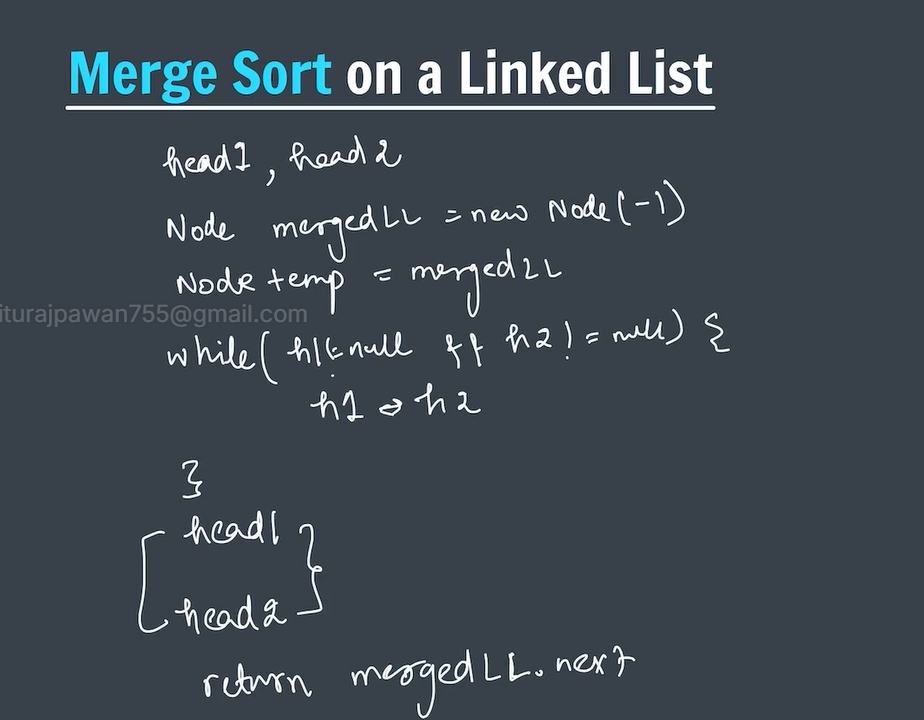 Merge Sort on a Linked List
head1, head2
Node mergedLL = new Node(-1)
Node temp = mergedLL
iturajpawan755@gmail.com
while(h1!=null && h2!=null) {
h1 ⇔ h2
}
head1
head2
return mergedLL.next